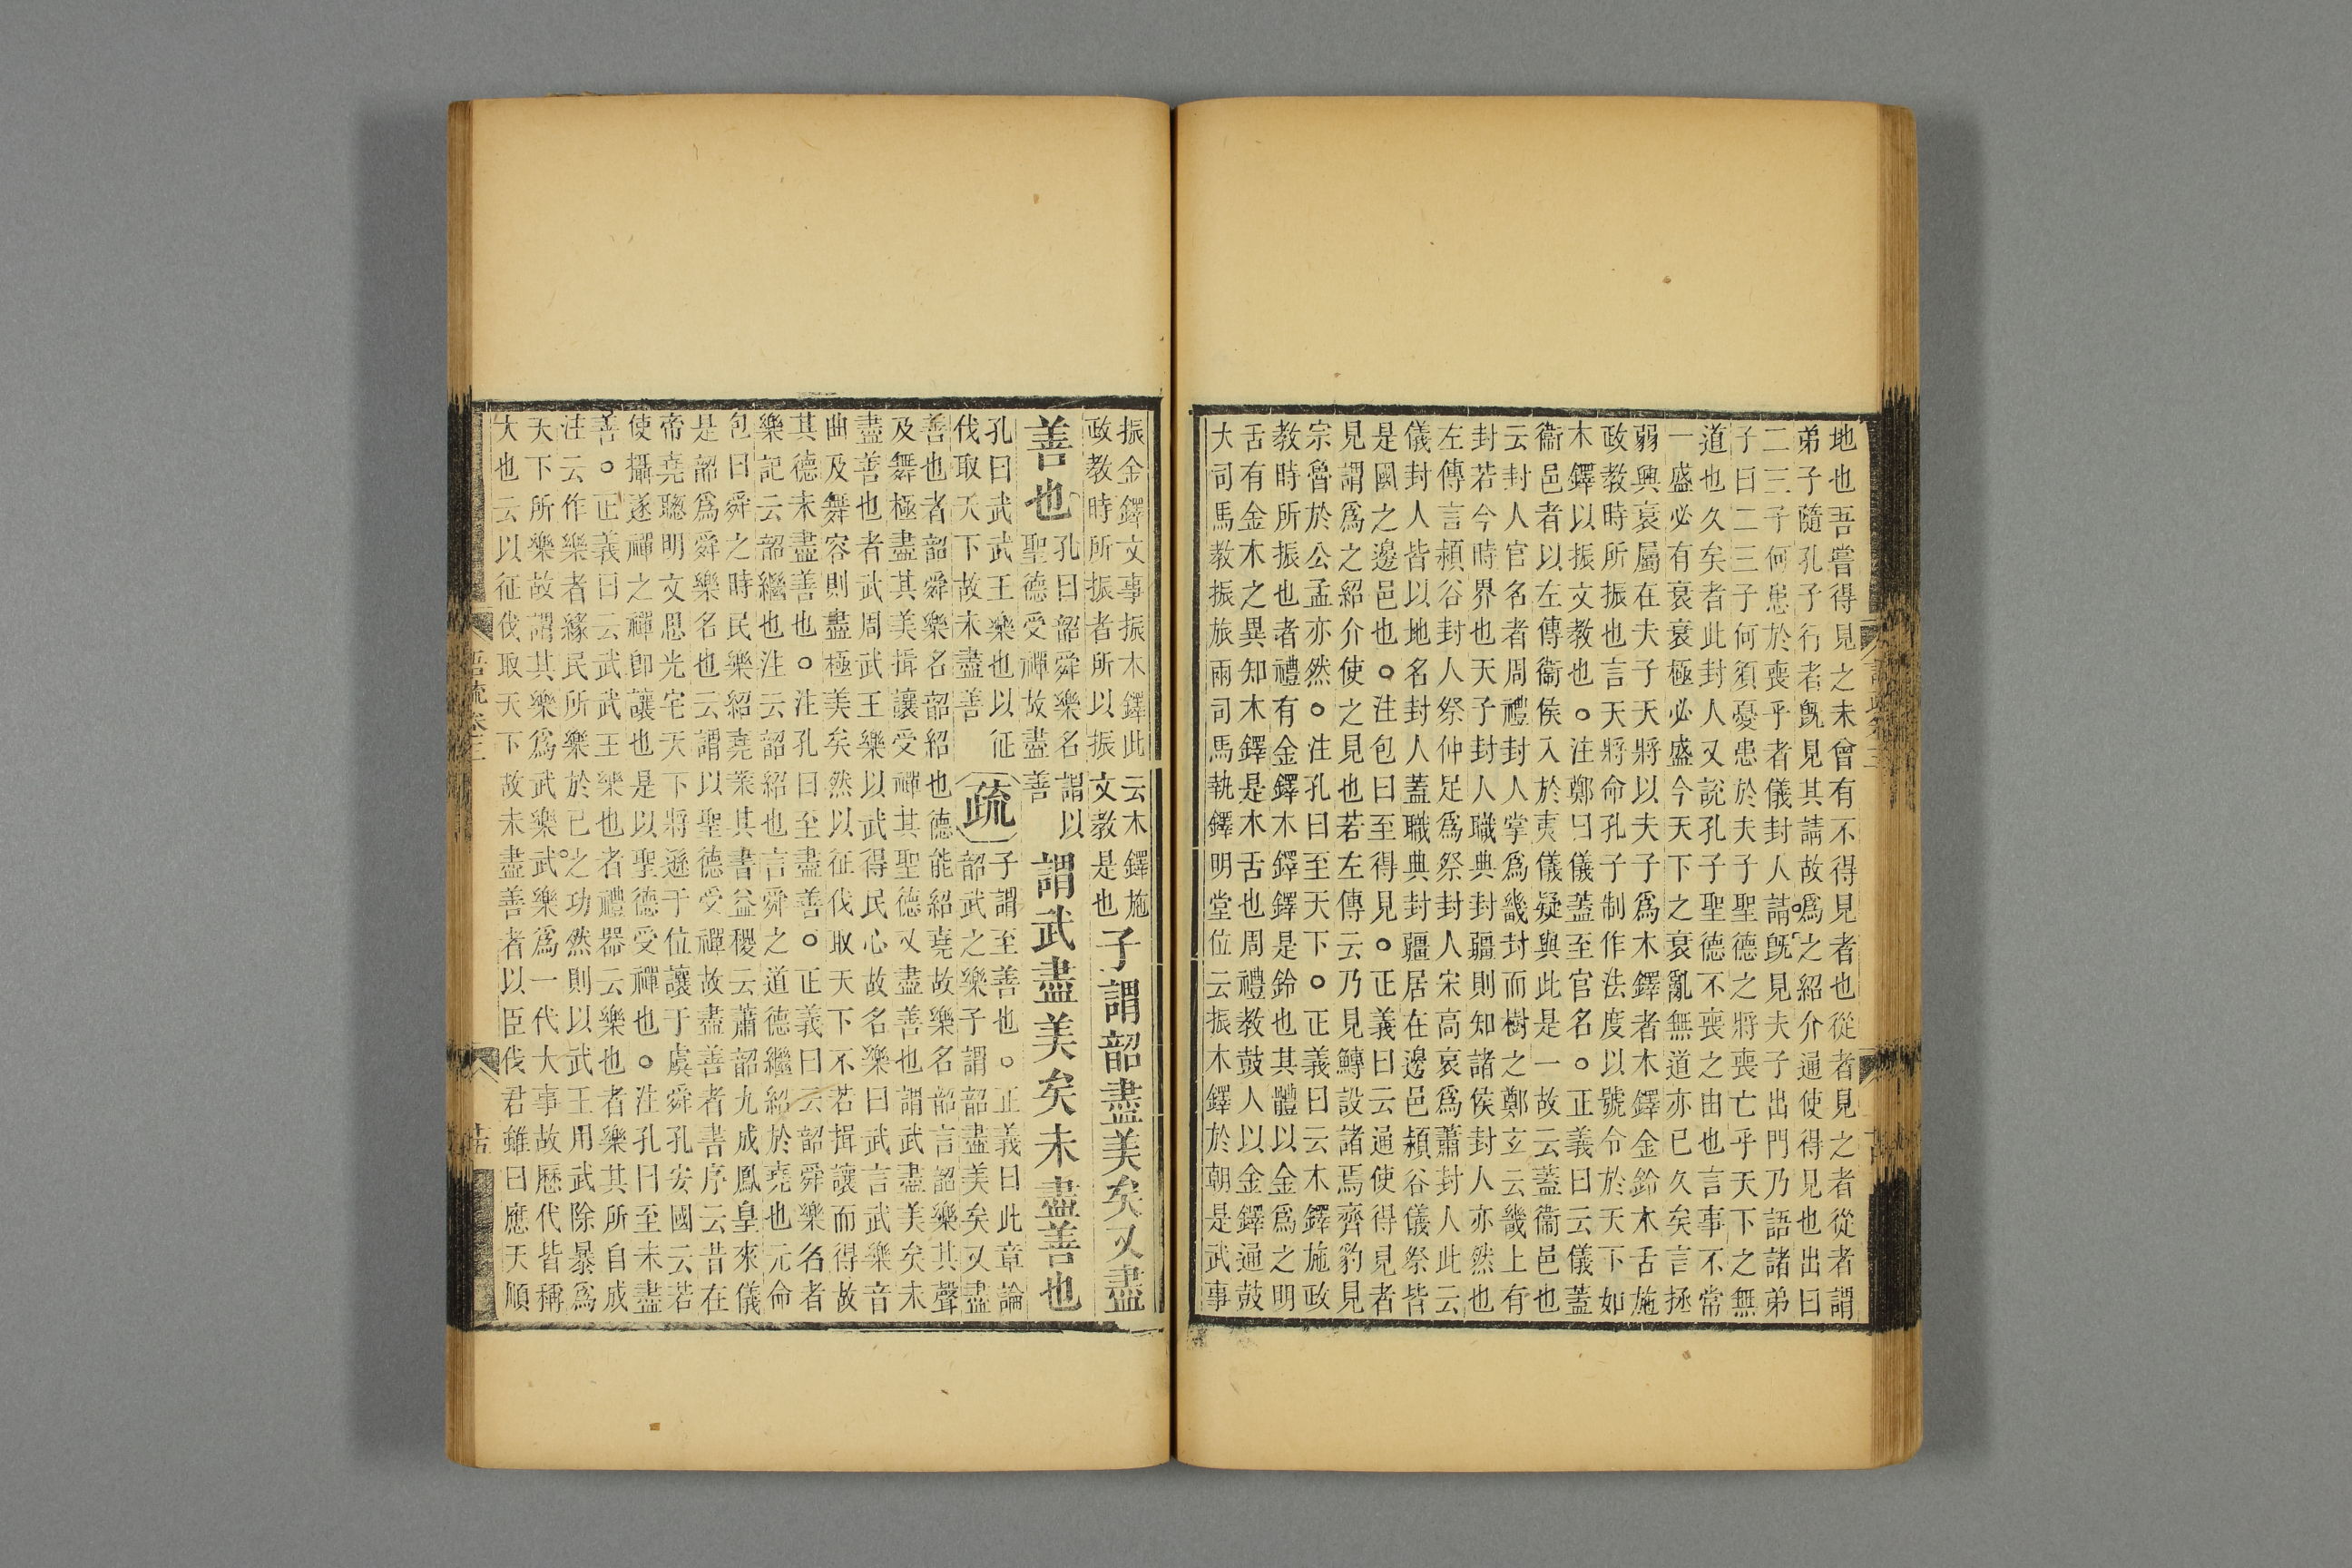 地也吾嘗得見之未曾有不得見者也從者見之者從者謂
弟子隨孔子行者旣見其請故爲之紹介通使得見也出曰
二三子何患於喪乎者儀封人請旣見夫子出門乃語諸弟
子曰二三子何須憂患於夫子聖德之將喪亡乎天下之無
道也久矣者此封人又說孔子聖德不喪之由也言事不常
一盛必有衰衰極必盛今天下之衰亂無道亦已久矣言拯
弱興衰屬在夫子天將以夫子爲木鐸者木鐸金鈴木舌施
政教時所振也言天將命孔子制作法度以號令於天下如
木鐸以振文教也○注鄭曰儀蓋至官名○正義曰云儀蓋
衞邑者以左傳衞侯入於夷儀疑與此是一故云蓋衞邑也
云封人官名者周禮封人掌爲畿封而樹之鄭玄云畿上有
封若今時界也天子封人職典封疆則知諸侯封人亦然也
左傳言潁谷封人祭仲足爲祭封人宋高哀爲蕭封人此云
儀封人皆以地名封人蓋職典封疆居在邊邑潁谷儀祭皆
是國之邊邑也○注包曰至得見○正義曰云通使得見者
見謂爲之紹介使之見也若左傳云乃見鱄設諸焉齊豹見
宗魯於公孟亦然○注孔曰至天下○正義曰云木鐸施政
教時所振也者禮有金鐸木鐸鐸是鈴也其體以金爲之明
舌有金木之異知木鐸是木舌也周禮教鼓人以金鐸通鼓
大司馬教振旅兩司馬執鐸明堂位云振木鐸於朝是武事
振金鐸文事振木鐸此云木鐸施
政教時所振者所以振文教是也
子謂韶盡美矣又盡
善也
孔曰韶舜樂名謂以
聖德受禪故盡善
謂武盡美矣未盡善也
孔曰武武王樂也以征
伐取天下故未盡善
疏
子謂至善也○正義曰此章論
韶武之樂子謂韶盡美矣又盡
善也者韶舜樂名韶紹也德能紹堯故樂名韶言韶樂其聲
及舞極盡其美揖讓受禪其聖德又盡善也謂武盡美矣未
盡善也者武周武王樂以武得民心故名樂曰武言武樂音
曲及舞容則盡極美矣然以征伐取天下不若揖讓而得故
其德未盡善也○注孔曰至盡善○正義曰云韶舜樂名者
樂記云韶繼也注云韶紹也言舜之道德繼紹於堯也元命
包曰舜之時民樂紹堯業其書益稷云蕭韶九成鳳皇來儀
是韶爲舜樂名也云謂以聖德受禪故盡善者書序云昔在
帝堯聰明文思光宅天下將遜于位讓于虞舜孔安國云若
使攝遂禪之禪卽讓也是以聖德受禪也○注孔曰至未盡
善○正義曰云武武王樂也者禮器云樂也者樂其所自成
注云作樂者緣民所樂於已之功然則以武王用武除暴爲
天下所樂故謂其樂爲武樂武樂爲一代大事故歷代皆稱
大也云以征伐取天下故未盡善者以臣伐君雖曰應天順